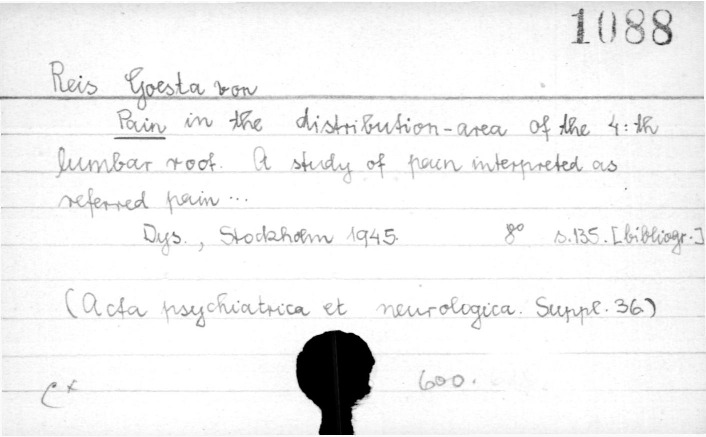 1088
Reis Goesta von
Pain in the distribution-area of the 4:th
lumbar root. A study of pain interpreted as
referred pain ...
Dys., Stockholm 1945. 8° s.135. [bibliogr.]
(Acta psychiatrica et neurologica. Suppl. 36)
600.